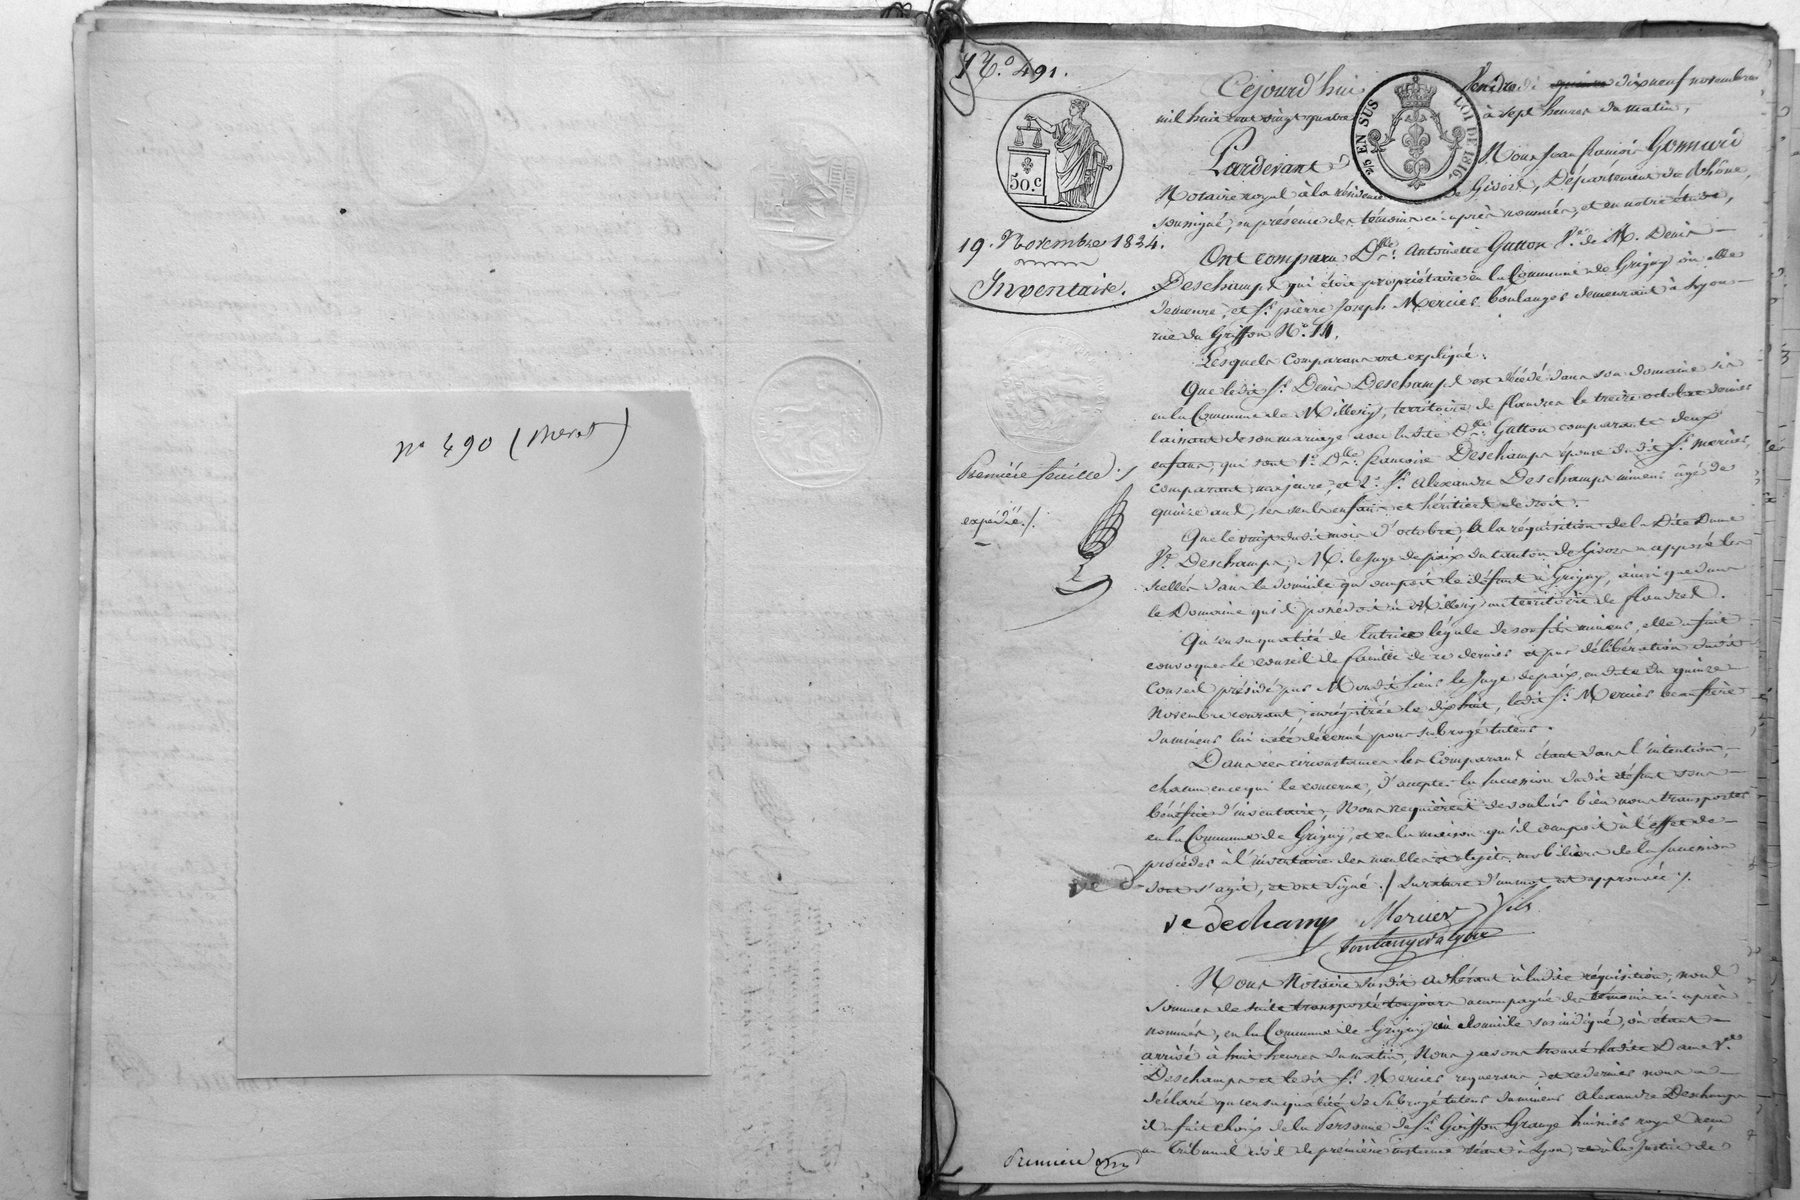 nº 490 (Meret)
Nº. 491.
50.C
2/5 EN SUS LOI DE 1816.
19. Novembre 1824.
Inventaire.
Première feuille ./
expédié ./
Cejourd'hui Vendredi dixneuf novembre
mil huit cent vingt quatre à sept heures du matin,
Pardevant Nous Jean françois Gonnard
Notaire royal à la résidence de Givors, Département du Rhône,
soussigné, en présence des témoins ci-après nommés, et en notre étude,
Ont comparu Dlle. Antoinette Gutton Ve. de M. Denis
Deschamps qui étoit propriétaire en la Commune de Grigny où elle
demeure, et Sr. pierre Joseph Mercier boulanger demeurant à Lyon
rue du Griffon Nº. 11.
Lesquels comparans ont expliqué :
Que ledit Sr. Denis Deschamps est décédé dans son domaine sis
en la Commune de Millery, territoire de flandres le treize octobre dernier
laissant de son mariage avec ladite Dlle. Gutton comparante deux
enfans, qui sont 1º. Dlle. francoise Deschamps épouse dudit Sr. mercier,
comparant, majeure, et 2º. Sr. Alexandre Deschamps mineur âgé de
quinze ans, ses seuls enfans et héritiers de droit.
Que le vingt dudit mois d'octobre, à la réquisition de la Dite Dame
Ve. Deschamps, M. le Juge de paix du canton de Givors a apposé les
scellés dans le domicile qu'occupoit le défunt à Grigny, ainsi que dans
le Domaine qu'il possédoit à Millery au territoire de flandres.
Qu'en sa qualité de Tutrice légale de son fils mineur, elle a fait
convoquer le conseil de famille de ce dernier et par délibération dudit
Conseil présidé par Mondit Sieur le Juge de paix, en date du quinze
Novembre courant, enregistrée le dix huit, ledit Sr. Mercier beau frère
du mineur lui a été décerné pour subrogé tuteur.
Dans ces circonstances les Comparans étant dans l'intention,
chacun en ce qui le concerne, d'accepter la succession dudit défunt sous
bénéfice d'inventaire, Nous requièrent de vouloir bien nous transporter
en la Commune de Grigny, et en la maison qu'il occupoit à l'effet de
procéder à l'inventaire des meubles et objets mobiliers de la succession
dont s'agit, et ont signé ./ surcharge d'un mot approuvée ./
ve dechamp Mercier fils
Nous Notaire susdit adhérant à ladite réquisition, nous
sommes de suite transporté toujours accompagné des témoins ci-après
nommés, en la Commune de Grigny au domicile sus indiqué, où étant
arrivé à huit heures du matin, Nous y avons trouvé ladite Dame Ve.
Deschamps et ledit Sr. Mercier requerans, et ce dernier nous a
déclaré qu'en sa qualité de Subrogé tuteur du mineur Alexandre Deschamps
il a fait choix de la Personne de Sr. Goiffon Grange huissier royal reçu
au Tribunal civil de première instance séant à Lyon, et à la Justice de
Première